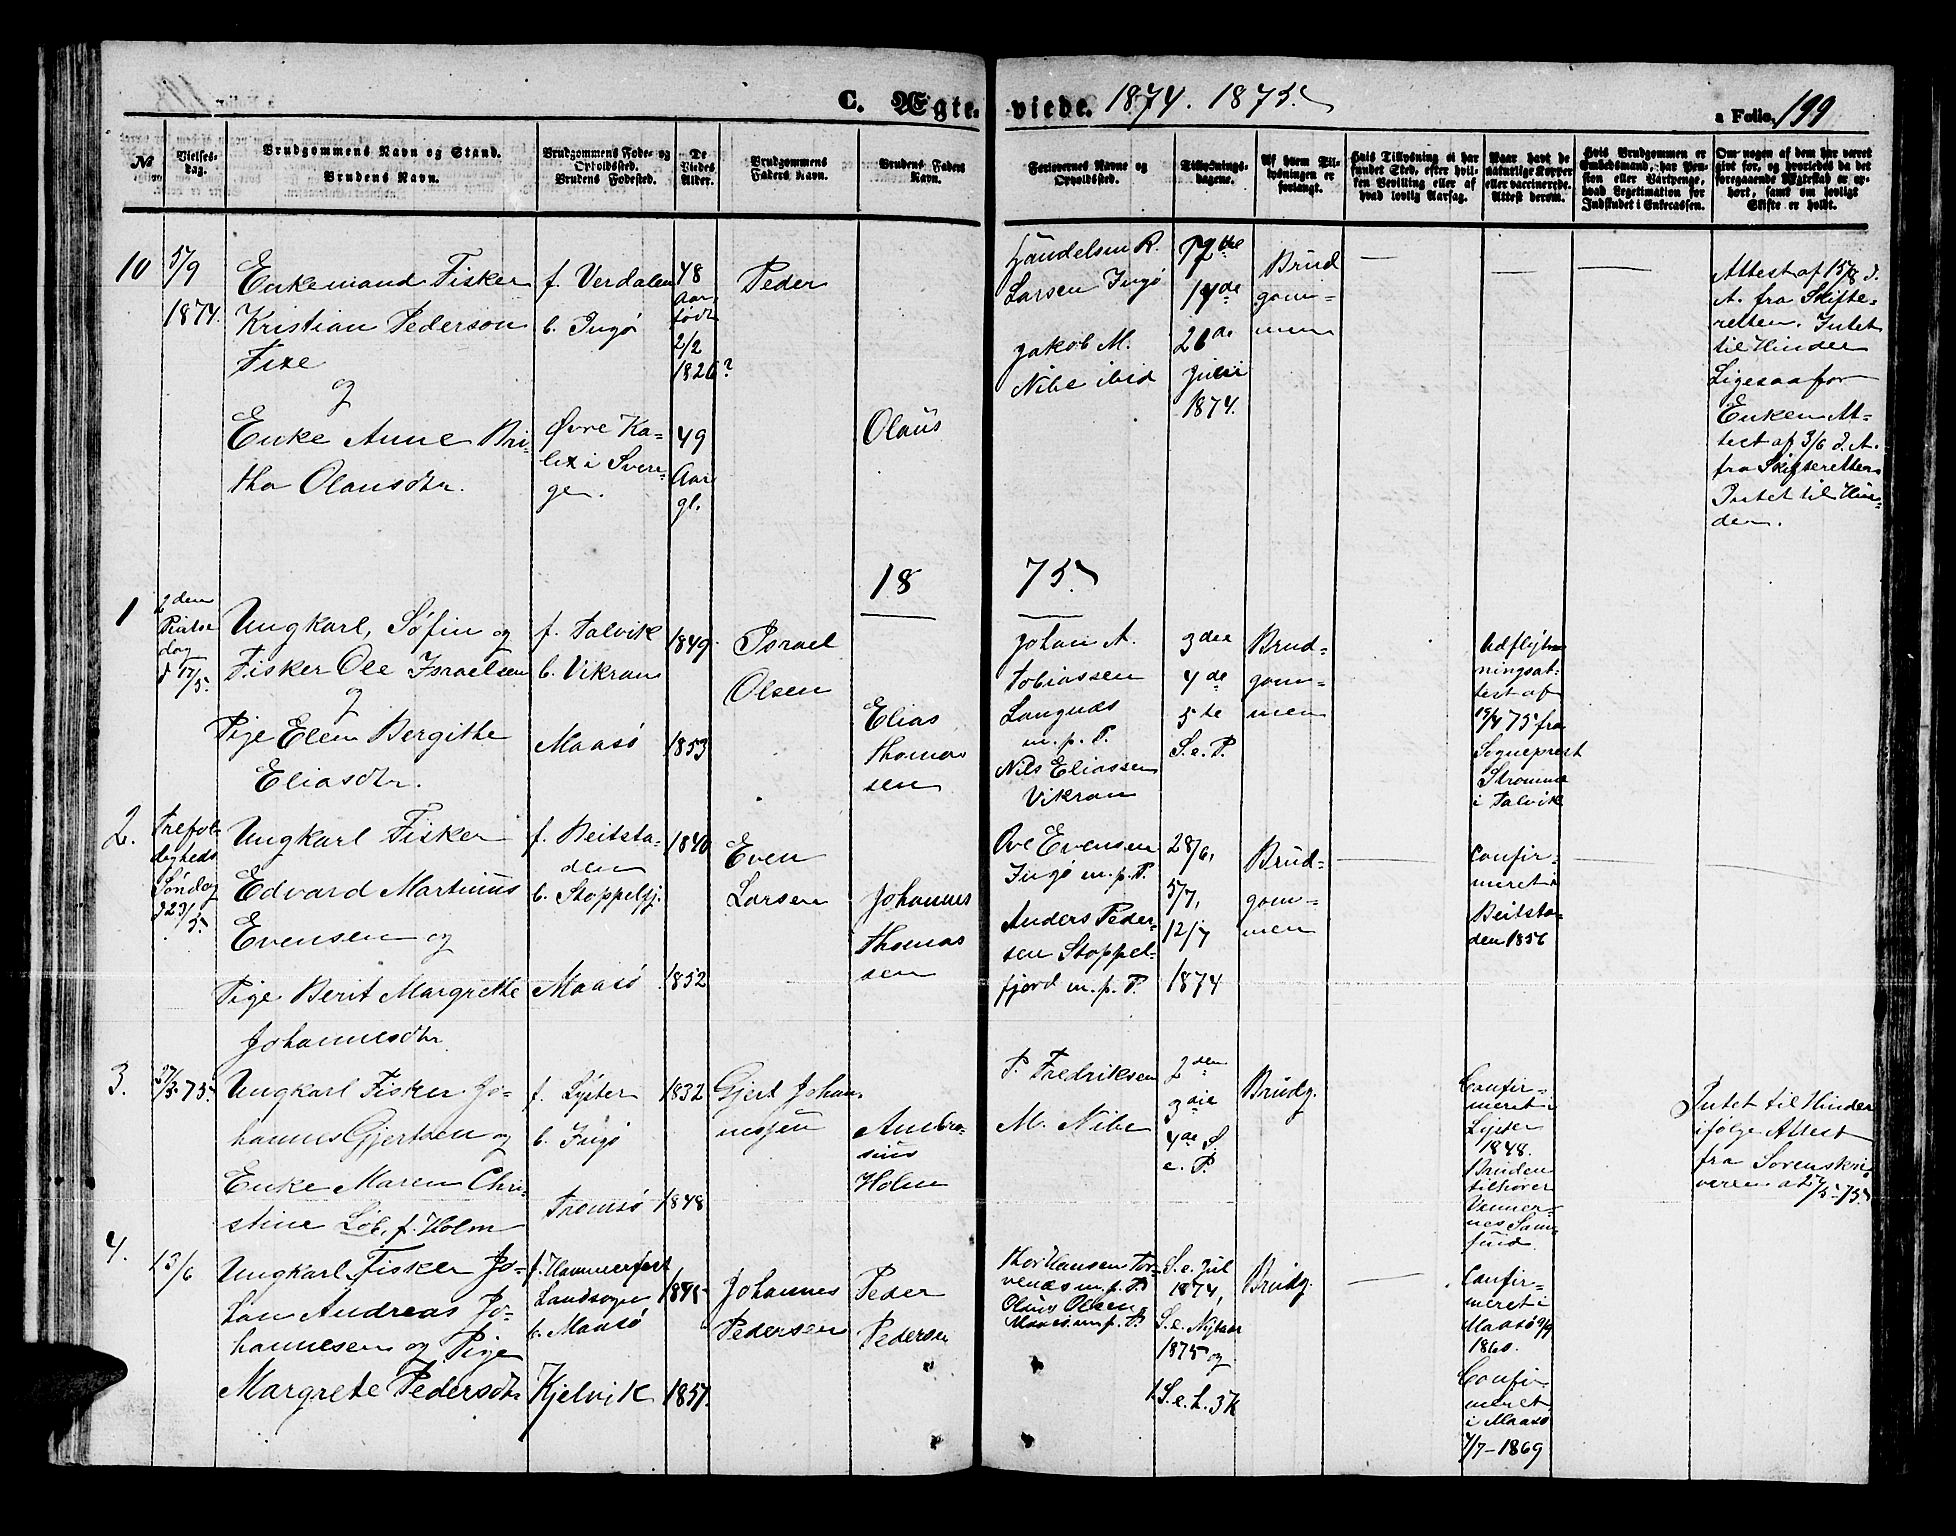 C. Ægte-viede. 1874. 1875.
a Folio. 199
No
Vielses-dag.
Brudgommens Navn og Stand.
Brudens Navn.
Brudgommens Føde- og Opholdssted.
Brudens Fødested.
De Viedes Alder.
Brudgommens Faders Navn.
Brudens Faders Navn.
Forlovernes Navne og Opholdssted.
Tillysnings-dagene.
Af hvem Til-lysningen er forlangt.
Hvis Tillysning ei har fundet Sted, efter hvil-ken Bevilling eller af hvad lovlig Aarsag.
Naar havt de naturlige Kopper eller vaccinerede. Attest derom.
Hvis Brudgommen er Embedsmand, har Pen-sion eller Vartpenge, hvad Legitimation for Indskudet i Enkecassen.
Om nogen af dem har været gift før, og hvorledes da det foregaaende Ægteskab er op-hørt, samt om lovligt Skifte er holdt.
10
5/9
1874.
Enkemand Fisker
Kristian Pederson
Fixe
og
Enke Anne Bri-
tha Olausdtr.
f. Verdalen
b. Ingø
Øvre Ka-
lix i Sveri-
ge.
48
aar
født
2/2
1826?
49
Aar
gl.
Peder
Olaus
Handelsm R.
Larsen Ingø
Jakob M.
Nibe ibid
12te
19de
26de
Juli
1874.
Brud
gom-
men
Attest af 15/8 d.
A. fra Skifte-
retten. Intet
til Hinder
Ligesaa for
Enken At-
test af 3/6 d. A.
fra Skifteretten
Intet til Hin-
der.
1875
1
2den
Pintse
dag
d 17/5.
Ungkarl, Søfin og
Fisker Ole Israelsen
og
Pige Elen Bergitte
Eliasdtr.
f. Talvik
b. Vikran
Maasø
1849.
1853
Israel
Olsen
Elias
Thomas
sen
Johan A.
Tobiassen
Langnæs
m. p. P.
Nils Eliassen
Vikran
3die
4de
5te
S. e. P.
Brud-
gom-
men
Udflyt-
ningsat-
test af
15/4 75 fra
Sogneprest
Strømme
i Talvik
2.
Trefol
digheds
Søndag
d 23/5.
Ungkarl Fisker
Edvard Martinus
Evensen og
Pige Berit Margrethe
Johannesdtr.
f. Beitsta-
den
b. Stoppelfj.
Maasø
1840
1852
Even
Larsen
Johannes
Thomas
sen
Ove Evensen
Ingø m. p. P.
Anders Peder-
sen Stoppel-
fjord m. p. P.
28/6,
5/7,
12/7
1874
Brud-
gom-
men
Confir-
meret i
Beitsta-
den 1856
3.
27/5 75.
Ungkarl Fisker Jo-
hannes Gjertsen og
Enke Maren Chri-
stine Løb. f. Holm
f. Lyster
b. Ingø
Tromsø
1832
1848
Gjert Johan-
nessen
Ambro-
sius
Holm
P. Fredriksen
M. Nibe
2den
3die
4de S.
e. P.
Brudg.
Confir-
meret i
Lyster
1848.
Bruden
tilhører
Venner-
nes Sam-
fund.
Intet til Hinder
ifølge Attest
fra Sorenskri-
veren a 27/5 75
4.
13/6
Ungkarl Fisker Jo-
han Andreas Jo-
hannesen og Pige
Margrete Pedersdtr
f. Hammerfest
Landsogn
b. Maasø
Kjelvik
1845
1857.
Johannes
Pedersen
Peder
Pedersen
Thor Hansen Tor-
venæs m. p. P.
Olaus Olsen
Maasø m. p. P.
S. e. Jul
1874,
S. e. Nytaar
1875 og
1 S. e. H. 3 K
Brudg.
Confir-
meret i
Maasø 9/9
1860.
Confir-
meret
i Maasø
4/7-1869